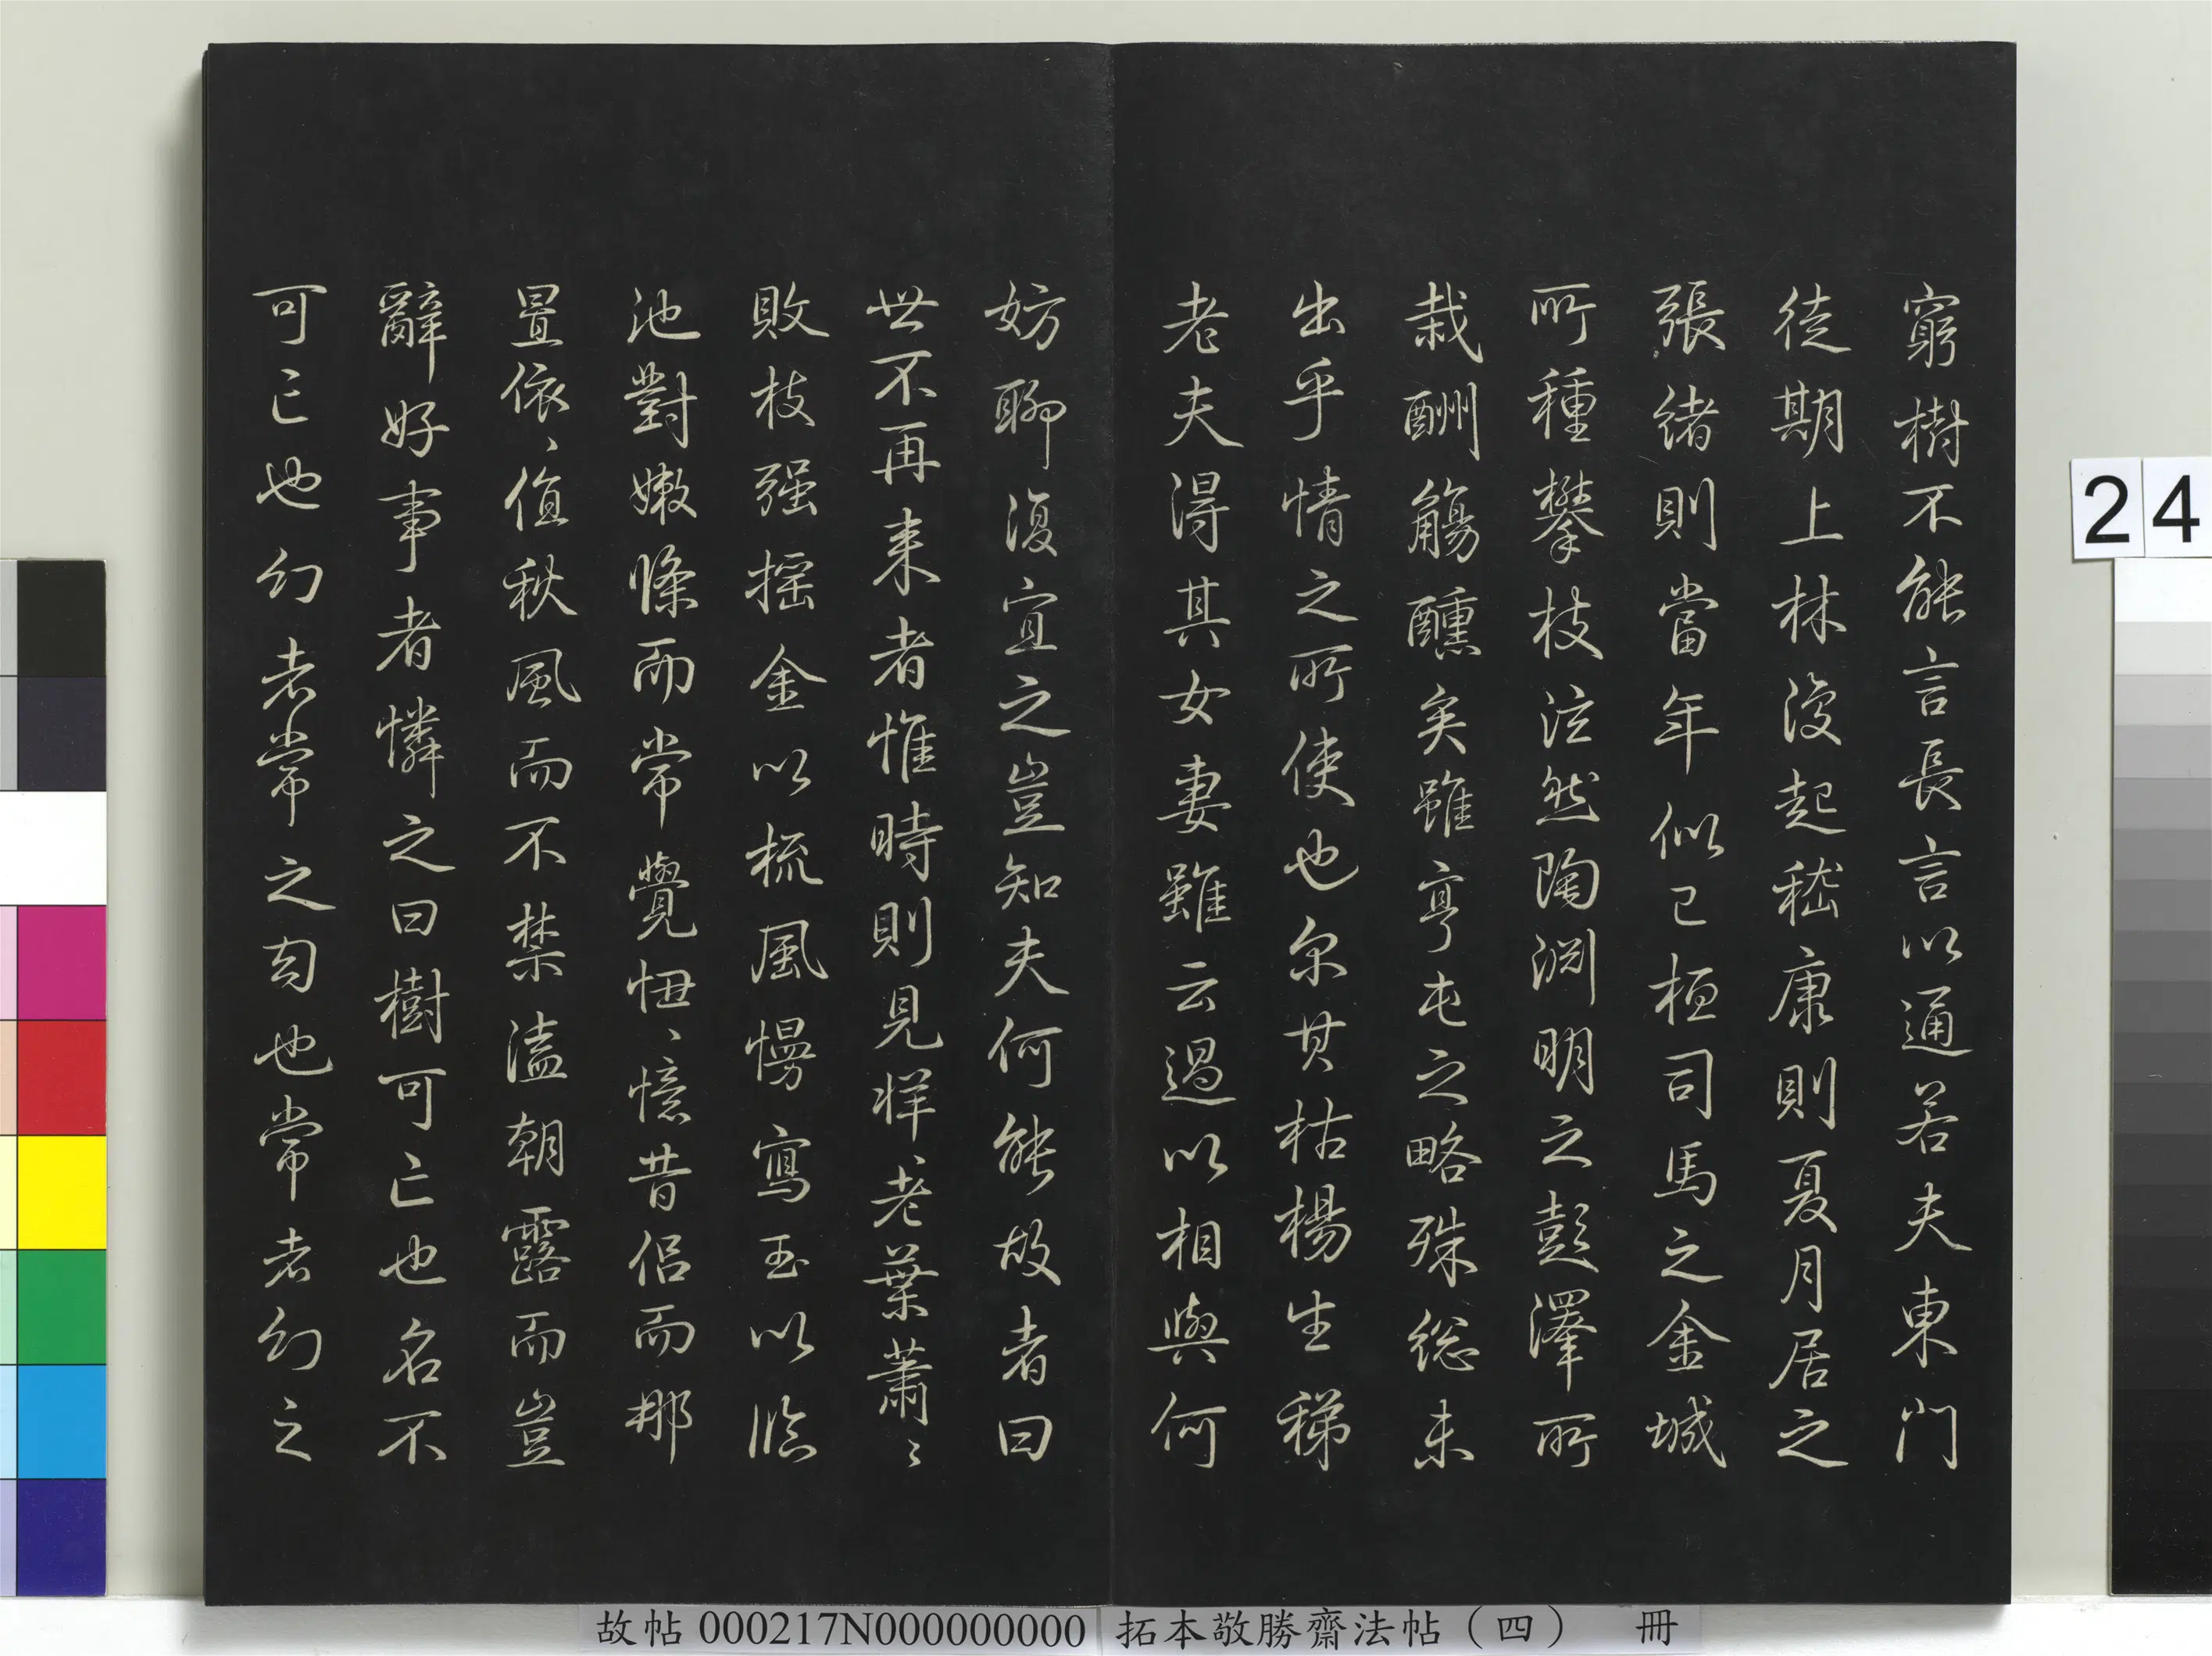 窮樹不能言長言以通若夫東門
徒期上林浚起嵇康則夏月居之
張緒則當年似已桓司馬之金城
所種攀枝泣然陶渊明之彭澤所
栽酬觴醺矣雖亨屯之略殊総未
出乎情之所使也尔其枯楊生稊
老夫得其女妻雖云過以相與何
妨聊復宜之豈知夫何能故者曰
世不再来者惟時則見牂老葉蕭〻
敗枝强摇金以梳風慢寫玉以临
池對嫩條而常覺忸〻憶昔侣而那
置依〻值秋風而不禁溘朝露而豈
辭好事者憐之曰樹可亡也名不
可亡也幻者常之自也常者幻之
24
故帖000217N000000000 拓本敬勝齋法帖（四） 冊